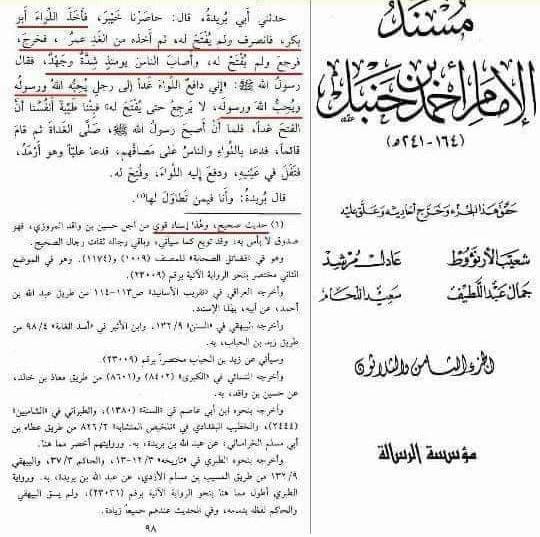 مسند
الإمام أحمد بن حنبل
(١٦٤-٢٤١ه)
حقق هذا الجزء وخرج أحاديثه وعلق عليه
شعيب الأرنؤوط عادل مرشد
جمال عبد اللطيف سعيد اللحام
الجزء الثامن والثلاثون
مؤسسة الرسالة
حدثني أبي بُريدةُ، قال: حاصَرْنا خَيْبَر، فأَخَذَ اللِّواءَ أبو
بكر، فانصرف ولم يُفْتَحْ له، ثم أخذه من الغَدِ عمرُ، فخرج،
فرجع ولم يُفْتَحْ له، وأصابَ الناسَ يومئذٍ شِدَّةٌ وجَهْدٌ، فقال
رسولُ الله ﷺ: «إني دافعٌ اللِّواءَ غداً إلى رجلٍ يُحِبُّه اللهُ ورسولُه
ويُحِبُّ اللهَ ورسولَه، لا يرجعُ حتى يُفْتَحَ له» فبِتْنا طَيِّبةً أنفُسُنا أنَّ
الفتحَ غداً، فلما أنْ أصبحَ رسولُ الله ﷺ، صلَّى الغَداةَ ثم قامَ
قائماً، فدعا باللِّواءِ والناسُ على مَصافِّهم، فدعا عليّاً وهو أَرْمَدُ،
فتَفَلَ في عَيْنيهِ، ودفع إليه اللِّواءَ، وفُتِحَ له.
قال بُريدةُ: وأنا فيمن تَطاوَلَ لها(١).
(١) حديث صحيح، وهذا إسناد قوي من أجل حسين بن واقد المروزي، فهو
صدوق لا بأس به، وقد توبع كما سيأتي، وباقي رجاله ثقات رجال الصحيح.
وهو في «فضائل الصحابة» للمصنف (١٠٠٩) و(١١٧٤). وهو في الموضع
الثاني مختصر بنحو الرواية الآتية برقم (٢٣٠٠٩).
وأخرجه العراقي في «تقريب الأسانيد» ص١١٣-١١٤ من طريق عبد الله بن
أحمد، عن أبيه، بهذا الإسناد.
وأخرجه البيهقي في «السنن» ١٣٢/٩، وابن الأثير في «أسد الغابة» ٩٨/٤ من
طريق زيد بن الحباب، به.
وسيأتي عن زيد بن الحباب مختصراً برقم (٢٣٠٠٩).
وأخرجه النسائي في «الكبرى» (٨٤٠٢) و(٨٦٠١) من طريق معاذ بن خالد،
عن حسين بن واقد، به.
وأخرجه بنحوه ابن أبي عاصم في «السنة» (١٣٨٠)، والطبراني في «الشاميين»
(٢٤٤٤)، والخطيب البغدادي في «تلخيص المتشابه» ٨٢٦/٢ من طريق عطاء بن
أبي مسلم الخراساني، عن عبد الله بن بريدة، به. وروايتهم أخصر مما هنا.
وأخرجه بنحوه الطبري في «تاريخه» ١٢/٣-١٣، والحاكم ٣٧/٣، والبيهقي
١٣٢/٩ من طريق المسيب بن مسلم الأزدي، عن عبد الله بن بريدة، به. ورواية
الطبري أطول مما هنا بنحو الرواية الآتية برقم (٢٣٠٣١)، ولم يسق البيهقي
والحاكم لفظه بتمامه، وفي الحديث عندهم جميعاً زيادة.
٩٨